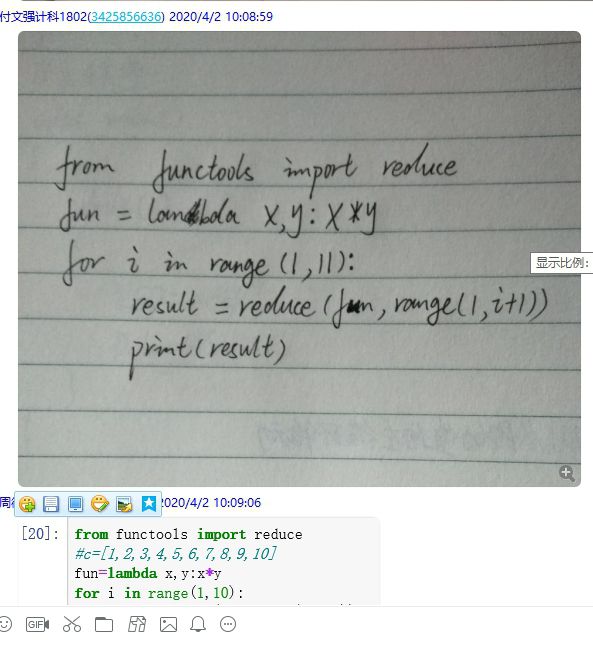 付文强计科1802(3425856636) 2020/4/2 10:08:59
from functools import reduce
fun = lambda x,y:x*y
for i in range(1,11):
显示比例:
result = reduce(fun,range(1,i+1))
print(result)
2020/4/2 10:09:06
[20]: from functools import reduce
#c=[1,2,3,4,5,6,7,8,9,10]
fun=lambda x,y:x*y
for i in range(1,10):
GIF